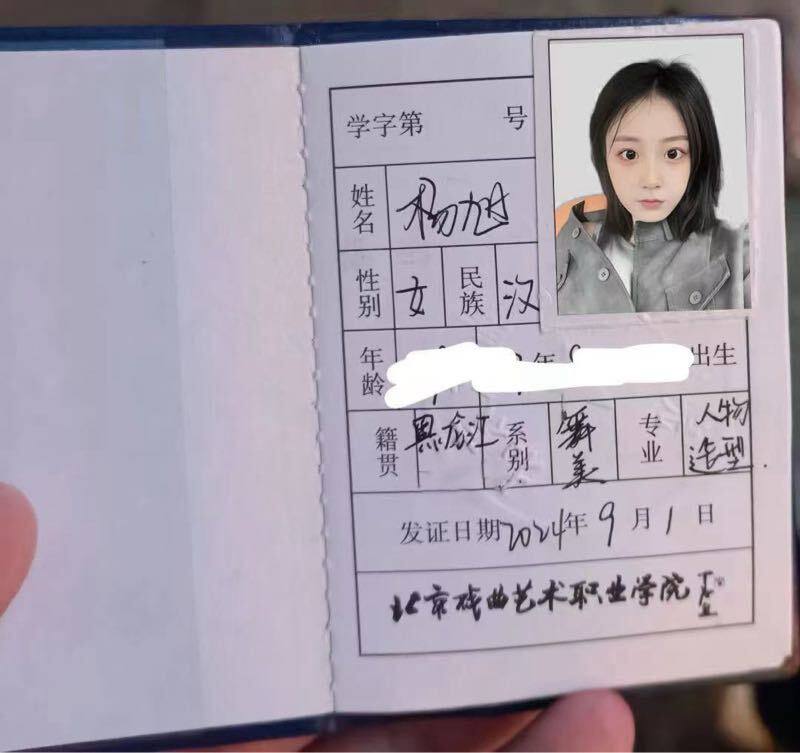 学字第 号
姓名 杨旭
性别 女 民族 汉
年龄 年 出生
籍贯 黑龙江 系别 舞美 专业 人物造型
发证日期2024年9月1日
北京戏曲艺术职业学院